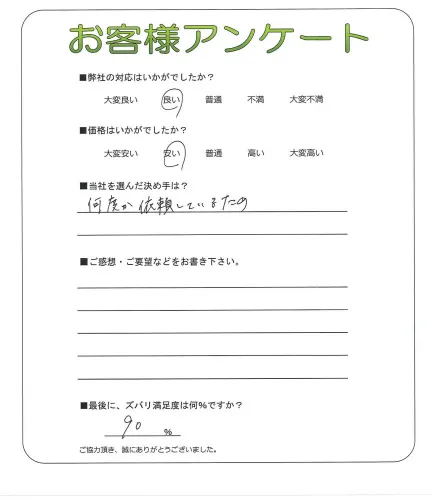 お客様アンケート
■弊社の対応はいかがでしたか？
大変良い 良い 普通 不満 大変不満
■価格はいかがでしたか？
大変安い 安い 普通 高い 大変高い
■当社を選んだ決め手は？
何度か依頼しているため
■ご感想・ご要望などをお書き下さい。
■最後に、ズバリ満足度は何%ですか？
90 %
ご協力頂き、誠にありがとうございました。